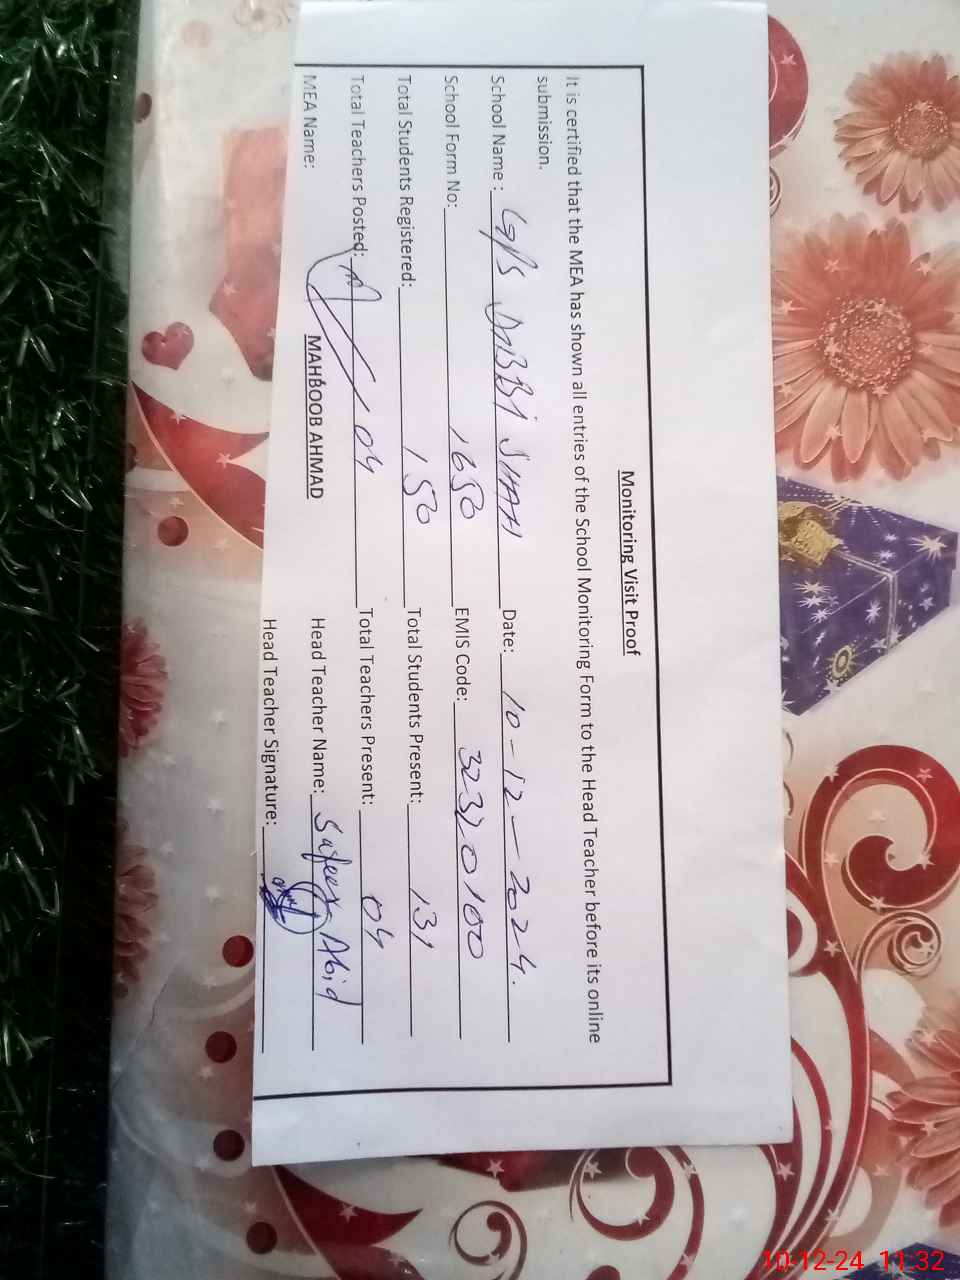 Monitoring Visit Proof
It is certified that the MEA has shown all entries of the School Monitoring Form to the Head Teacher before its online
submission.
School Name : GPS DABBI SHAH Date: 10-12-2024.
School Form No: 1650 EMIS Code: 32320100
Total Students Registered: 150 Total Students Present: 131
Total Teachers Posted: 04 Total Teachers Present: 04
MEA Name: MAHBOOB AHMAD Head Teacher Name: Safeer Abid
Head Teacher Signature:
10-12-24 11:32